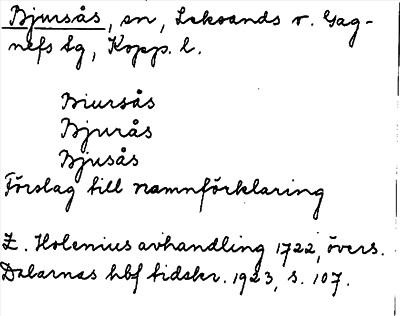 Bjursås, sn, Leksands o. Gag-
nefs tg, Kopp. l.
Biursås
Bjurås
Bjusås
Förslag till namnförklaring
Z. Holenius avhandling 1722, övers.
Dalarnas hbf tidskr. 1923, s. 107.